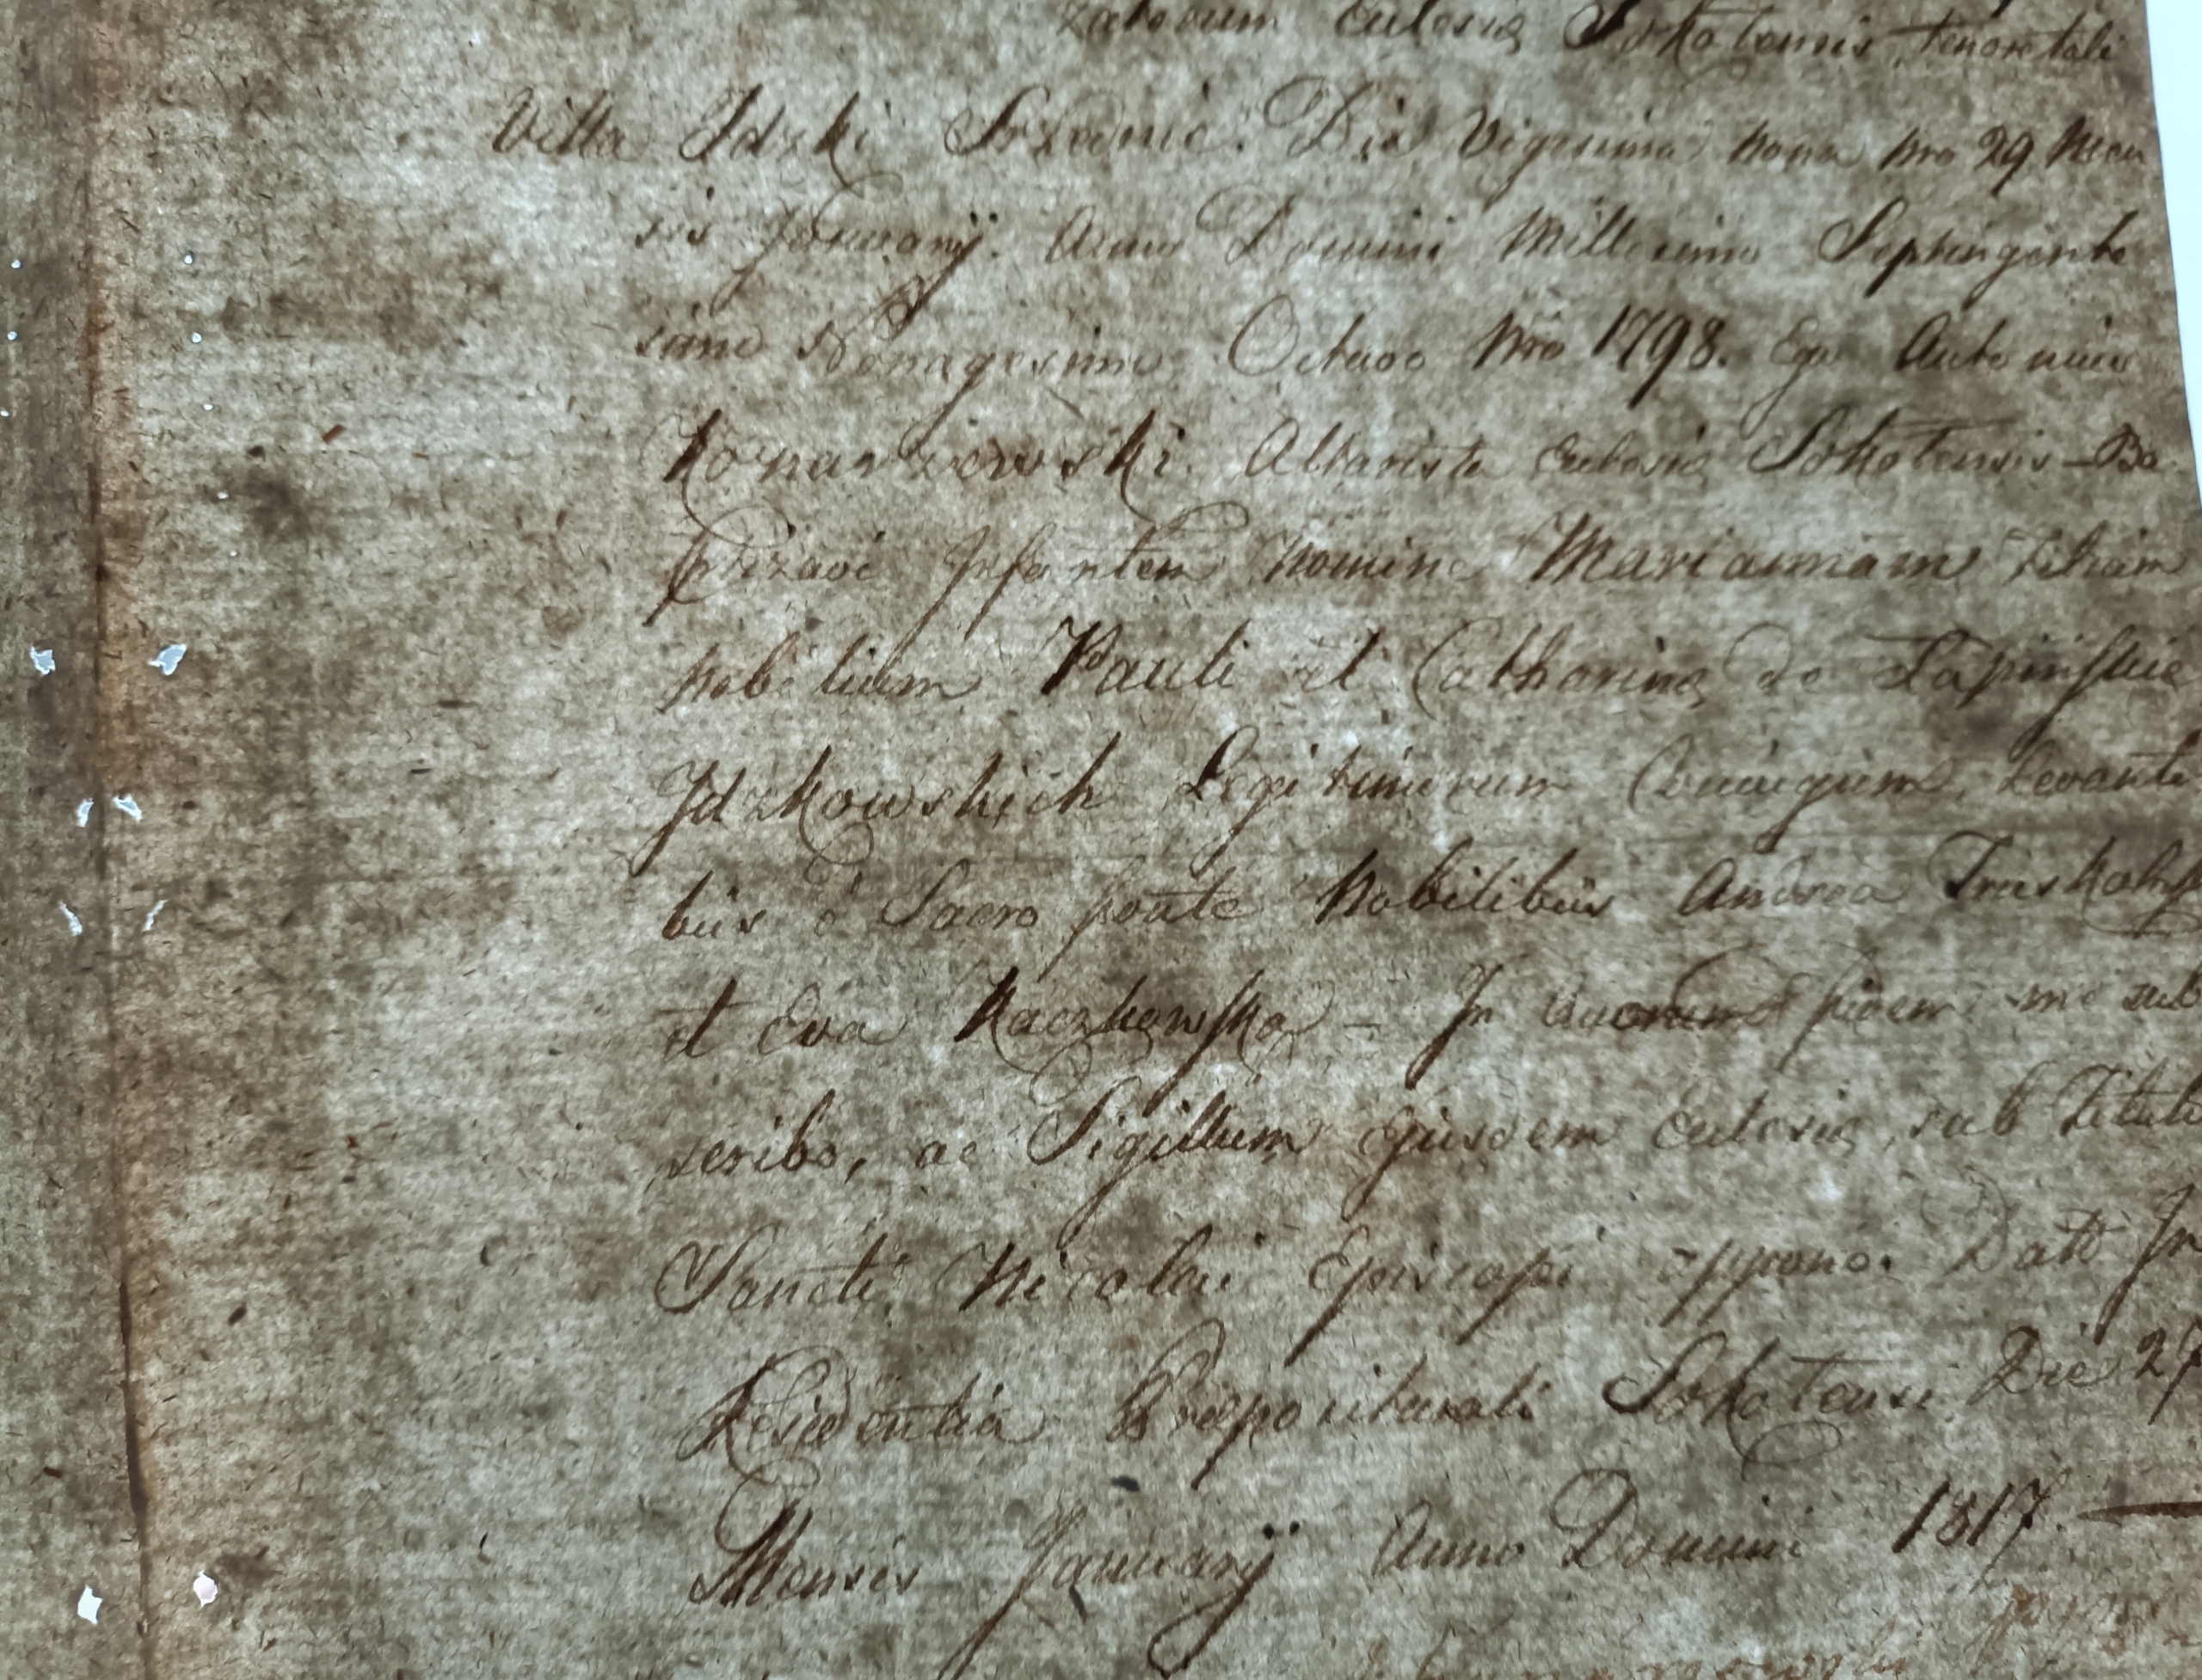 zatorum Eclesiæ Sokołensis, tenore tali
Villa Idzki Srzednie. Die Vigesima nona Nro 29 Men
sis Januarÿ. Anno Domini Millesimo Septingente
simo Nonagesimo Octavo Nro 1798. Ego Antonius
Konarzewski Altarista Eclesiæ Sokołensis – Ba
ptizavi Infantem nomine Mariannam Filiam
Nobilium Pauli et Catharinæ de Łapinskie
Idzkowskich Legitimorum Coniugum Levanti
bus é Sacro fonte Nobilibus Andrea
et Eva Kaczkowska – In quorum fidem me sub
scribo, ac Sigillum ejusdem Eclesiæ, sub Titulo
Sancti Nicolai Episcopi appono. Datt In
Residentia Præpositurali Sokołensi Die 27
Mensis Januarÿ Anno Domini 1817. —